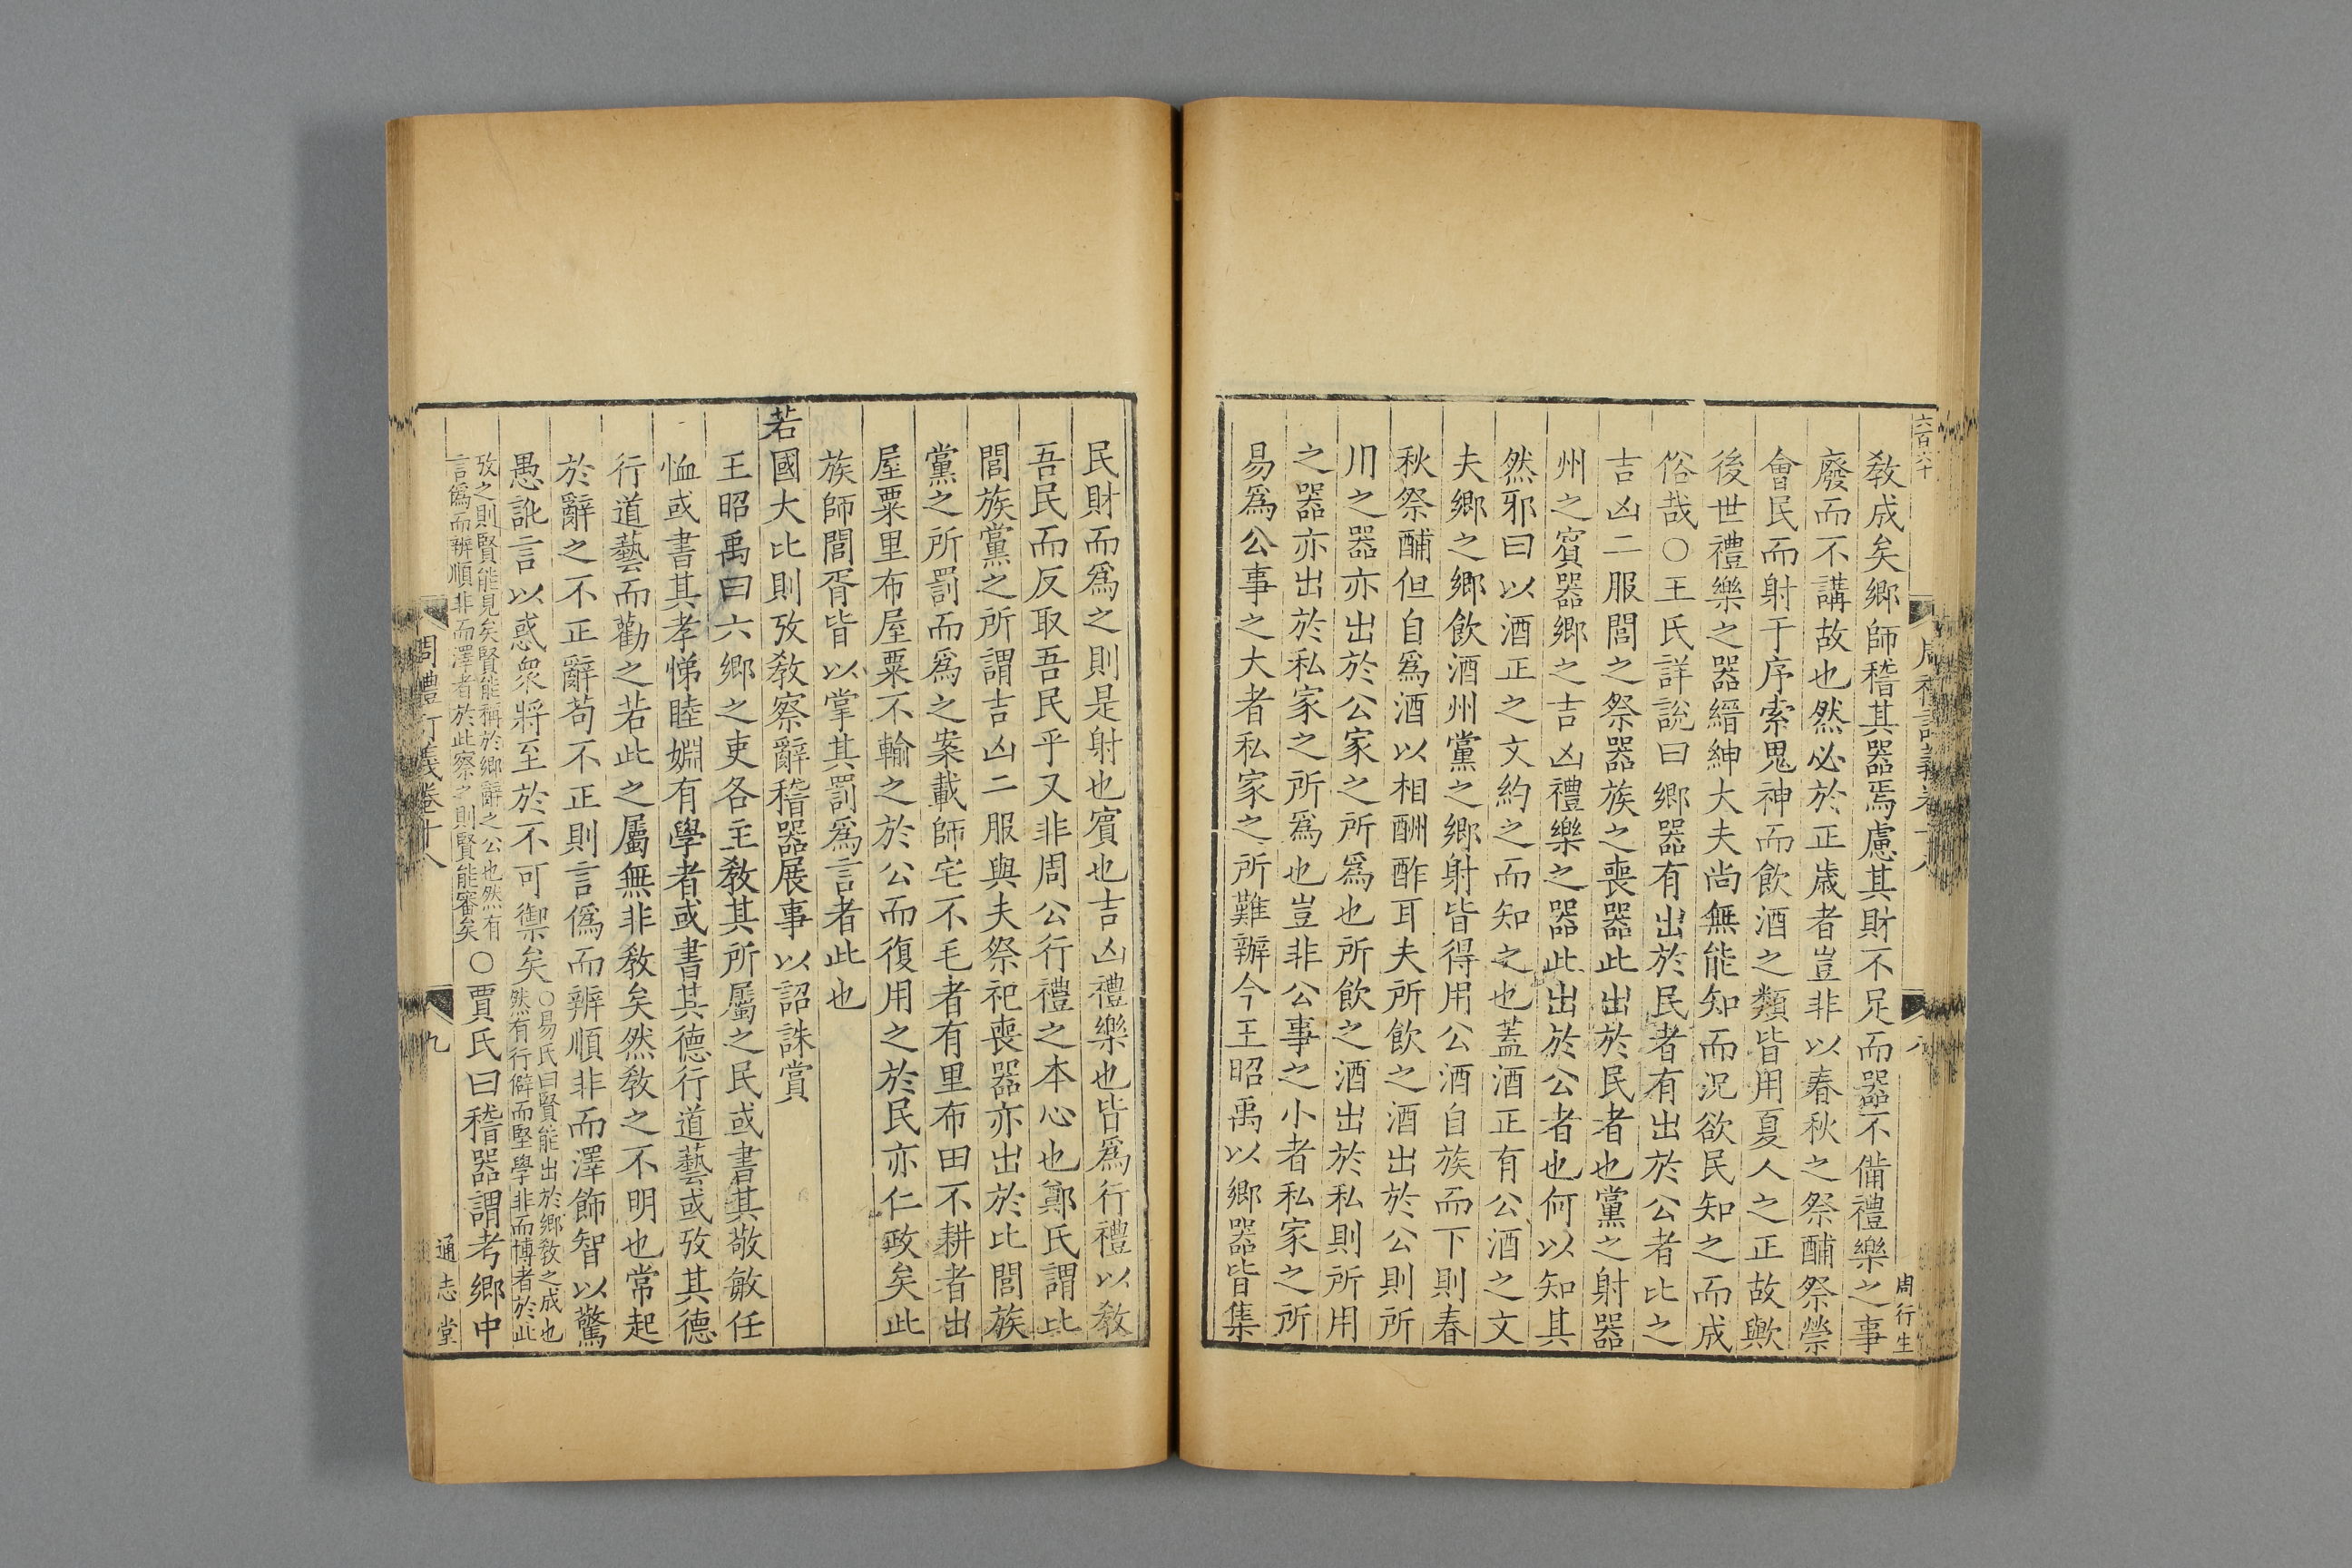 六百六十
周禮訂義卷十八
八
周行生
敎成矣鄉師稽其器焉慮其財不足而器不備禮樂之事
廢而不講故也然必於正歲者豈非以春秋之祭酺祭禜
會民而射于序索鬼神而飲酒之類皆用夏人之正故歟
後世禮樂之器縉紳大夫尚無能知而況欲民知之而成
俗哉○王氏詳說曰鄉器有出於民者有出於公者比之
吉凶二服閭之祭器族之喪器此出於民者也黨之射器
州之賓器鄉之吉凶禮樂之器此出於公者也何以知其
然邪曰以酒正之文約之而知之也蓋酒正有公酒之文
夫鄉之鄉飲酒州黨之鄉射皆得用公酒自族而下則春
秋祭酺但自爲酒以相酬酢耳夫所飲之酒出於公則所
用之器亦出於公家之所爲也所飲之酒出於私則所用
之器亦出於私家之所爲也豈非公事之小者私家之所
易爲公事之大者私家之所難辦今王昭禹以鄉器皆集
民財而爲之則是射也賓也吉凶禮樂也皆爲行禮以敎
吾民而反取吾民乎又非周公行禮之本心也鄭氏謂比
閭族黨之所謂吉凶二服與夫祭祀喪器亦出於比閭族
黨之所罰而爲之案載師宅不毛者有里布田不耕者出
屋粟里布屋粟不輸之於公而復用之於民亦仁政矣此
族師閭胥皆以掌其罰爲言者此也
若國大比則攷敎察辭稽器展事以詔誅賞
王昭禹曰六鄉之吏各主敎其所屬之民或書其敬敏任
恤或書其孝悌睦婣有學者或書其德行道藝或攷其德
行道藝而勸之若此之屬無非敎矣然敎之不明也常起
於辭之不正辭苟不正則言僞而辨順非而澤飾智以驚
愚訛言以惑衆將至於不可禦矣○易氏曰賢能出於鄉敎之成也
然有行僻而堅學非而博者於此
攷之則賢能見矣賢能稱於鄉辭之公也然有
言僞而辨順非而澤者於此察之則賢能審矣○賈氏曰稽器謂考鄉中
周禮訂義卷十八
九
通志堂